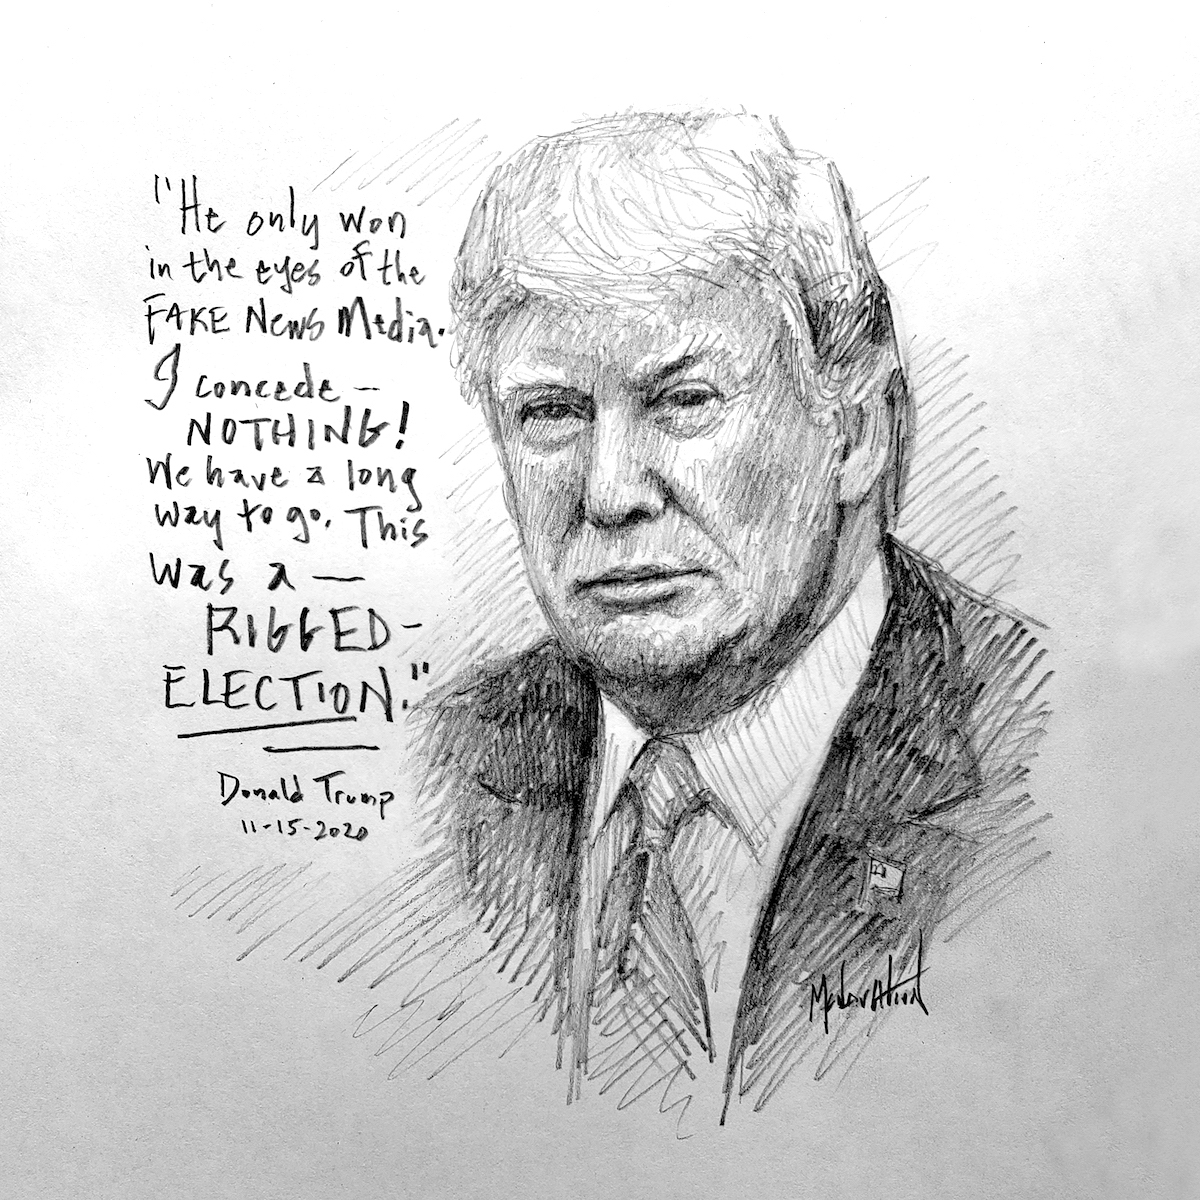 "He only won
in the eyes of the
FAKE News Media.
I concede —
NOTHING!
We have a long
way to go. This
was a —
RIGGED-
ELECTION."
Donald Trump
11-15-2020